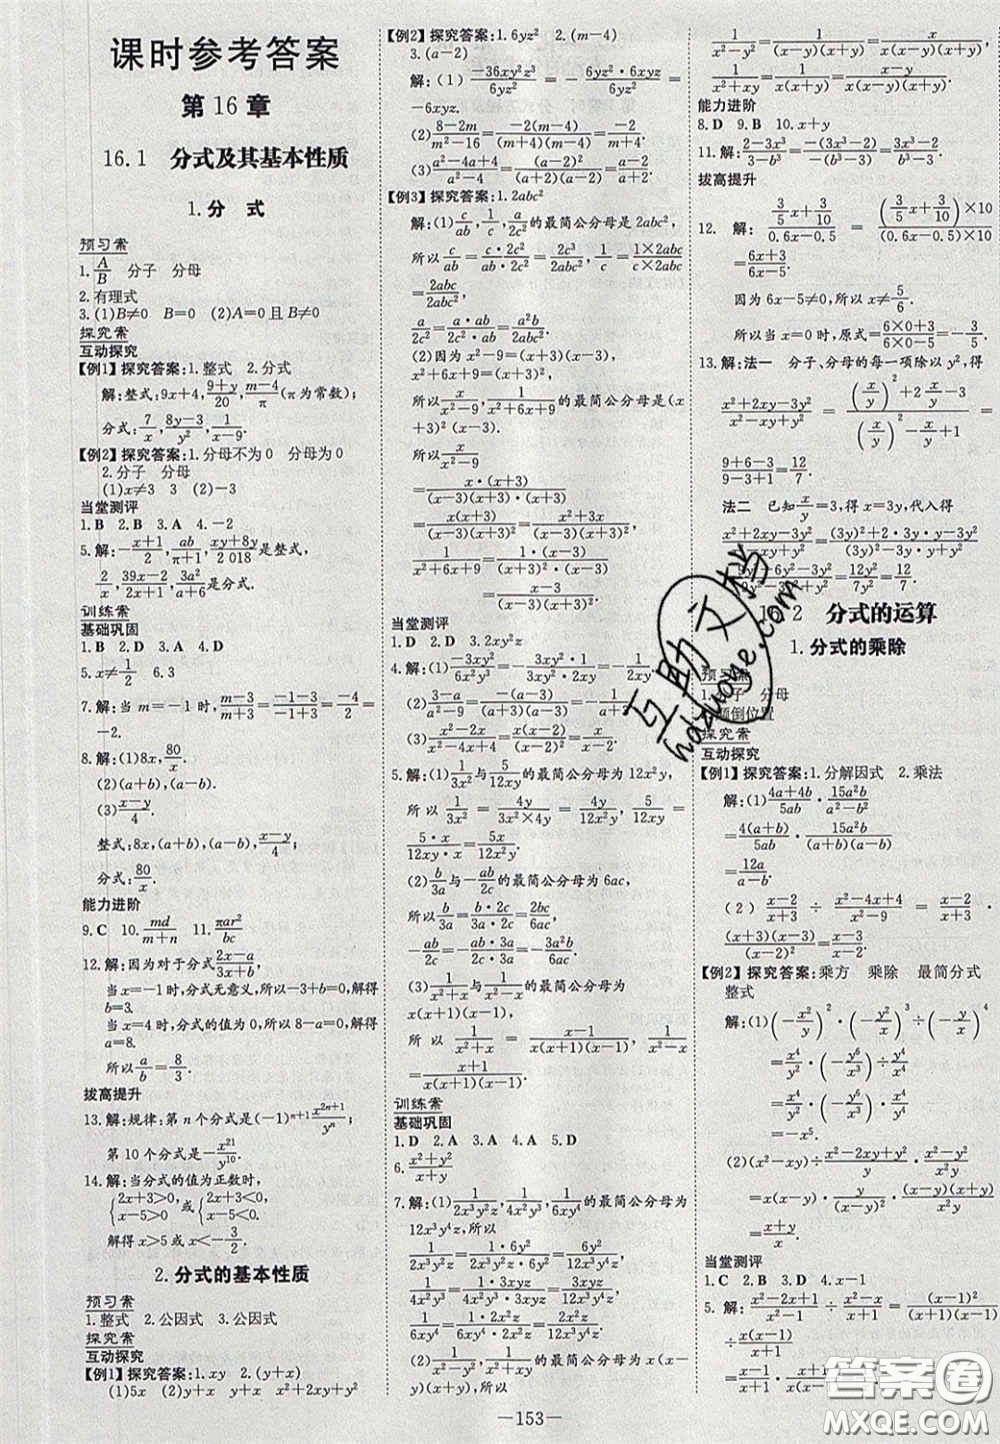 课时参考答案
第16章
16.1 分式及其基本性质
1.分 式
预习案
1. A/B 分子 分母
2.有理式
3.(1)B≠0 B=0 (2)A=0且B≠0
探究案
互动探究
【例1】探究答案:1.整式 2.分式
解:整式:9x+4,(9+y)/20,(m-4)/π(π为常数);
分式:7/x,(8y-3)/y²,1/(x-9).
【例2】探究答案:1.分母不为0 分母为0
2.分子 分母
(1)x≠3 3 (2)-4
当堂测评
1.B 2.B 3.A 4.-2
5.解:-(x+1)/2,ab/(π+1),(xy+8y)/2 018是整式,
2/x,(39x-2)/(x-1),3a²/(a+6)是分式.
训练案
基础巩固
1.B 2.D 3.A 4.B
5.x≠1/2 6.3
7.解:当m=-1时,(m-3)/(m+3)=(-1-3)/(-1+3)=-4/2=
-2.
8.解:(1)8x,80/x.
(2)(a+b),(a-b).
(3)(x-y)/4.
整式:8x,(a+b),(a-b),(x-y)/4;
分式:80/x.
能力进阶
9.C 10.md/(m+n) 11.πar²/bc
12.解:因为对于分式(2x-a)/(3x+b),
当x=-1时,分式无意义,所以-3+b=0,解得
b=3.
当x=4时,分式的值为0,所以8-a=0,解得
a=8.
所以a/b=8/3.
拔高提升
13.解:规律:第n个分式是(-1)ⁿ⁺¹x²ⁿ⁺¹/yⁿ.
第10个分式是-x²¹/y¹⁰.
14.解:当分式的值为正数时,
{2x+3>0, x-5>0 或{2x+3<0, x-5<0.
解得x>5或x<-3/2.
2.分式的基本性质
预习案
1.整式 2.公因式 3.公因式
探究案
互动探究
【例1】探究答案:1.xy 2.(a+b)
(1)5x (2)a²-b²
【例2】探究答案:1.6yz² 2.(m-4)
3.(a-2)
解:(1)-36xy²z³/6yz²=-(6yz²·6xyz)/6yz²=
-6xyz.
(2)(8-2m)/(m²-16)=-2(m-4)/(m+4)(m-4)=-2/(m+4).
(3)(a²-4a+4)/(a²-4)=(a-2)²/(a+2)(a-2)=(a-2)/(a+2).
【例3】探究答案:1.2abc²
解:(1)c/ab,1/c,a/2c²的最简公分母是2abc²,
c/ab=(c·2c²)/(ab·2c²)=2c³/2abc²,1/c=(1×2abc)/(c×2abc)
=2abc/2abc²,
a/2c²=(a·ab)/(2c²·ab)=a²b/2abc².
(2)因为x²-9=(x+3)(x-3),
x²+6x+9=(x+3)²,
所以x/(x²-9),1/(x²+6x+9)的最简公分母是(x
+3)²(x-3).
所以x/(x²-9)
=x·(x+3)/(x-3)(x+3)·(x+3)
=x(x+3)/(x-3)(x+3)²=(x²+3x)/(x-3)(x+3)²,
1/(x²+6x+9)=1·(x-3)/(x+3)²(x-3)
=(x-3)/(x-3)(x+3)².
当堂测评
1.D 2.D 3.2xy²z
4.解:(1)-3xy²/6x²y=-(3xy·y)/(3xy·2x)=-y/2x.
(2)(3-a)/(a²-9)=-(a-3)/(a+3)(a-3)=-1/(a+3).
(3)(x²-2x)/(x²-4x+4)=x(x-2)/(x-2)²=x/(x-2).
5.解:(1)1/3x²与5/12xy的最简公分母为12x²y,
所以1/3x²=4y/(3x²×4y)=4y/12x²y,5/12xy=
(5·x)/(12xy·x)=5x/12x²y.
(2)b/3a与-ab/2c的最简公分母为6ac,
所以b/3a=(b·2c)/(3a·2c)=2bc/6ac,
-ab/2c=-(ab·3a)/(2c·3a)=-3a²b/6ac.
(3)1/(x²+x)与1/(x²-x)的最简公分母为
x(x+1)(x-1),
所以1/(x²+x)=(x-1)/x(x+1)(x-1),1/(x²-x)=
(x+1)/x(x+1)(x-1).
训练案
基础巩固
1.D 2.A 3.A 4.A 5.D
6.(x²+y²)/(x+y)
7.解:(1)1/2x³y²z,1/4x²y³,1/6xy⁴的最简公分母为
12x³y⁴z,所以
1/2x³y²z=(1·6y²)/(2x³y²z·6y²)=6y²/12x³y⁴z,
1/4x²y³=(1·3xyz)/(4x²y³·3xyz)=3xyz/12x³y⁴z,
1/6xy⁴=(1·2x²z)/(6xy⁴·2x²z)=2x²z/12x³y⁴z.
(2)1/(x²-y²),1/(x²+xy)的最简公分母为x(x-
y)(x+y),所以
1/(x²-y²)=1/(x-y)(x+y)=x/x(x-y)(x+y),
1/(x²+xy)=1/x(x+y)=(x-y)/x(x-y)(x+y).
能力进阶
8.D 9.B 10.x+y
11.解:(2-3x³)/(3-b³)=-(3x³-2)/-(b³-3)=(3x³-2)/(b³-3).
拔高提升
12. 解:(3/5x+3/10)/(0.6x-0.5)=((3/5x+3/10)×10)/((0.6x-0.5)×10)
=(6x+3)/(6x-5).
因为6x-5≠0,所以x≠5/6.
所以当x=0时,原式=(6×0+3)/(6×0-5)=-3/5.
13.解:法一 分子、分母的每一项除以y²,得
(x²+2xy-3y²)/(x²-xy+y²)=((x/y)²+2x/y-3)/((x/y)²-x/y+1)=
(9+6-3)/(9-3+1)=12/7.
法二 已知x/y=3,得x=3y,代入得
(x²+2xy-3y²)/(x²-xy+y²)=((3y)²+2·3y·y-3y²)/((3y)²-3y·y+y²)
=(9y²+6y²-3y²)/(9y²-3y²+y²)=12y²/7y²=12/7.
16.2 分式的运算
1.分式的乘除
预习案
1.分子 分母
2.颠倒位置
探究案
互动探究
【例1】探究答案:1.分解因式 2.乘法
解:(1)(4a+4b)/5ab·15a²b/(a²-b²)
=4(a+b)/5ab·15a²b/(a+b)(a-b)
=12a/(a-b).
(2)(x-2)/(x+3)÷(x²-4x+4)/(x²-9)=(x-2)/(x+3)·
(x+3)(x-3)/(x-2)²=(x-3)/(x-2).
【例2】探究答案:乘方 乘除 最简分式
整式
解:(1)(-x²/y)²·(-y²/x)³÷(-y/x)⁴
=x⁴/y²·(-y⁶/x³)÷y⁴/x⁴
=x⁴/y²·(-y⁶/x³)·x⁴/y⁴
=-x⁵.
(2)(x²-xy)÷(x²-2xy+y²)/xy·(x-y)/x²
=x(x-y)·xy/(x-y)²·(x-y)(x+y)/x²
=(x+y)/x.
当堂测评
1.C 2.B 3.D 4.x-1
5. 解:(x²-2x+1)/(x²-1)÷(x²-x)/(x+1)=(x-1)²/(x+1)(x-1)
÷x(x-1)/(x+1)=(x-1)/(x+1)·(x+1)/x(x-1)=1/x.
互助文档
hdzuoye.com
答案圈
MXQE.COM
—153—